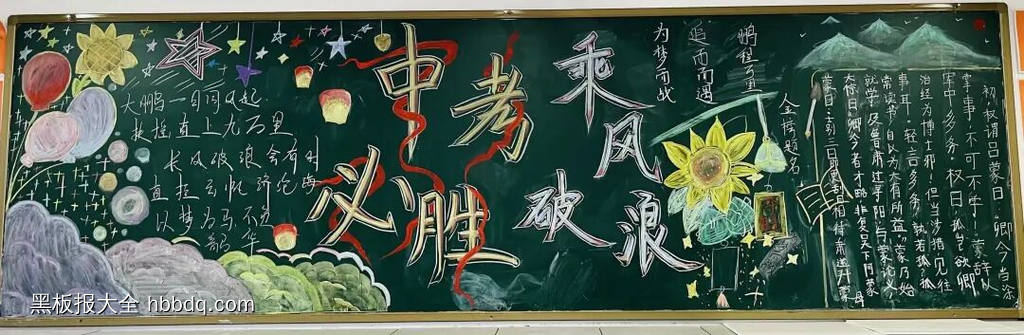 大鹏一日同风起
扶摇直上九万里
长风破浪会有时
直挂云帆济沧海
以梦为马不负韶华
中考
必胜
乘风
破浪
为梦而战
追而南遇
鹏程万里
金榜题名
初权谓吕蒙曰：卿今当涂
掌事，不可不学！蒙辞以
军中多务。权曰：孤岂欲卿
治经为博士邪！但当涉猎，见往
事耳。卿言多务，孰若孤？孤
常读书，自以为大有所益。蒙乃始
就学。及鲁肃过寻阳，与蒙论议，
大惊曰：卿今者才略，非复吴下阿蒙
黑板报大全 hbbdq.com